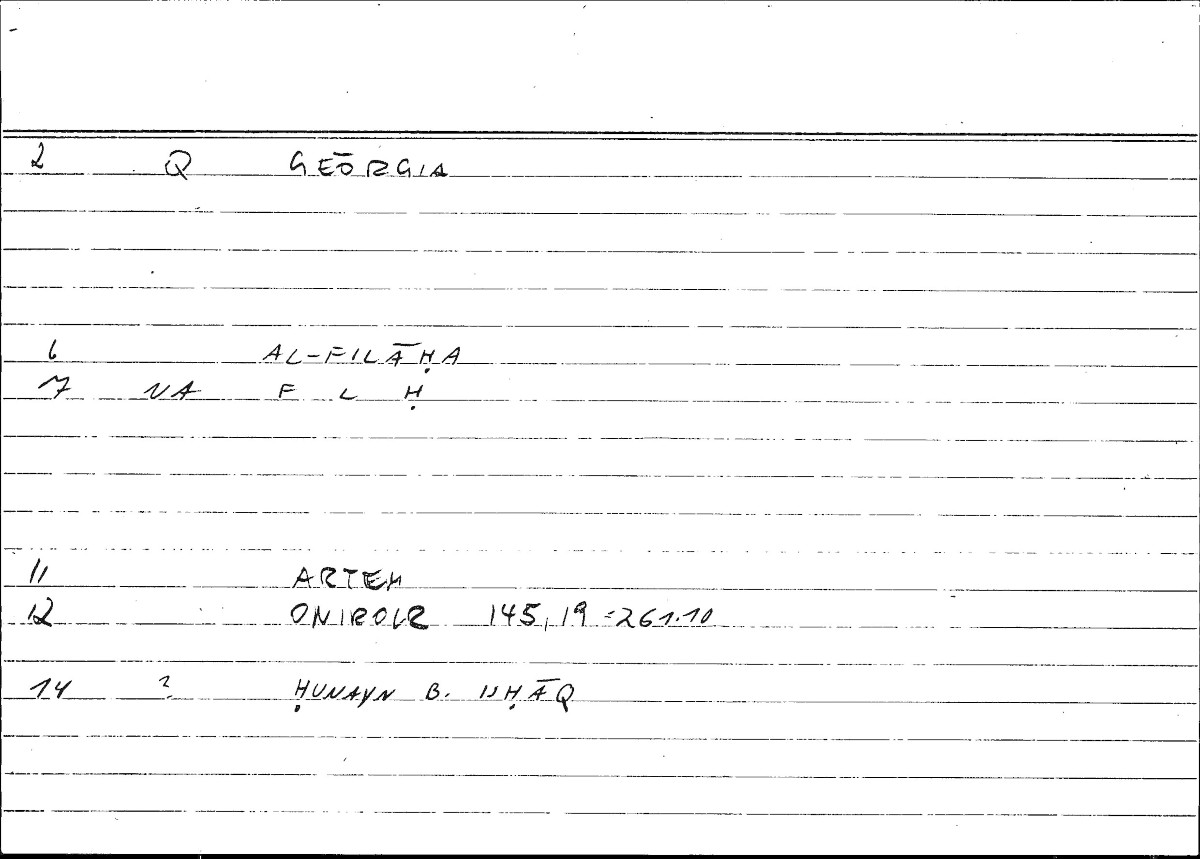 2 Q GEŌRGIA
6 AL-FILĀḤA
7 NA F L Ḥ
11 ARTEM
12 ONIROCR 145,19 = 261.10
14 ? ḤUNAYN B. ISḤĀQ